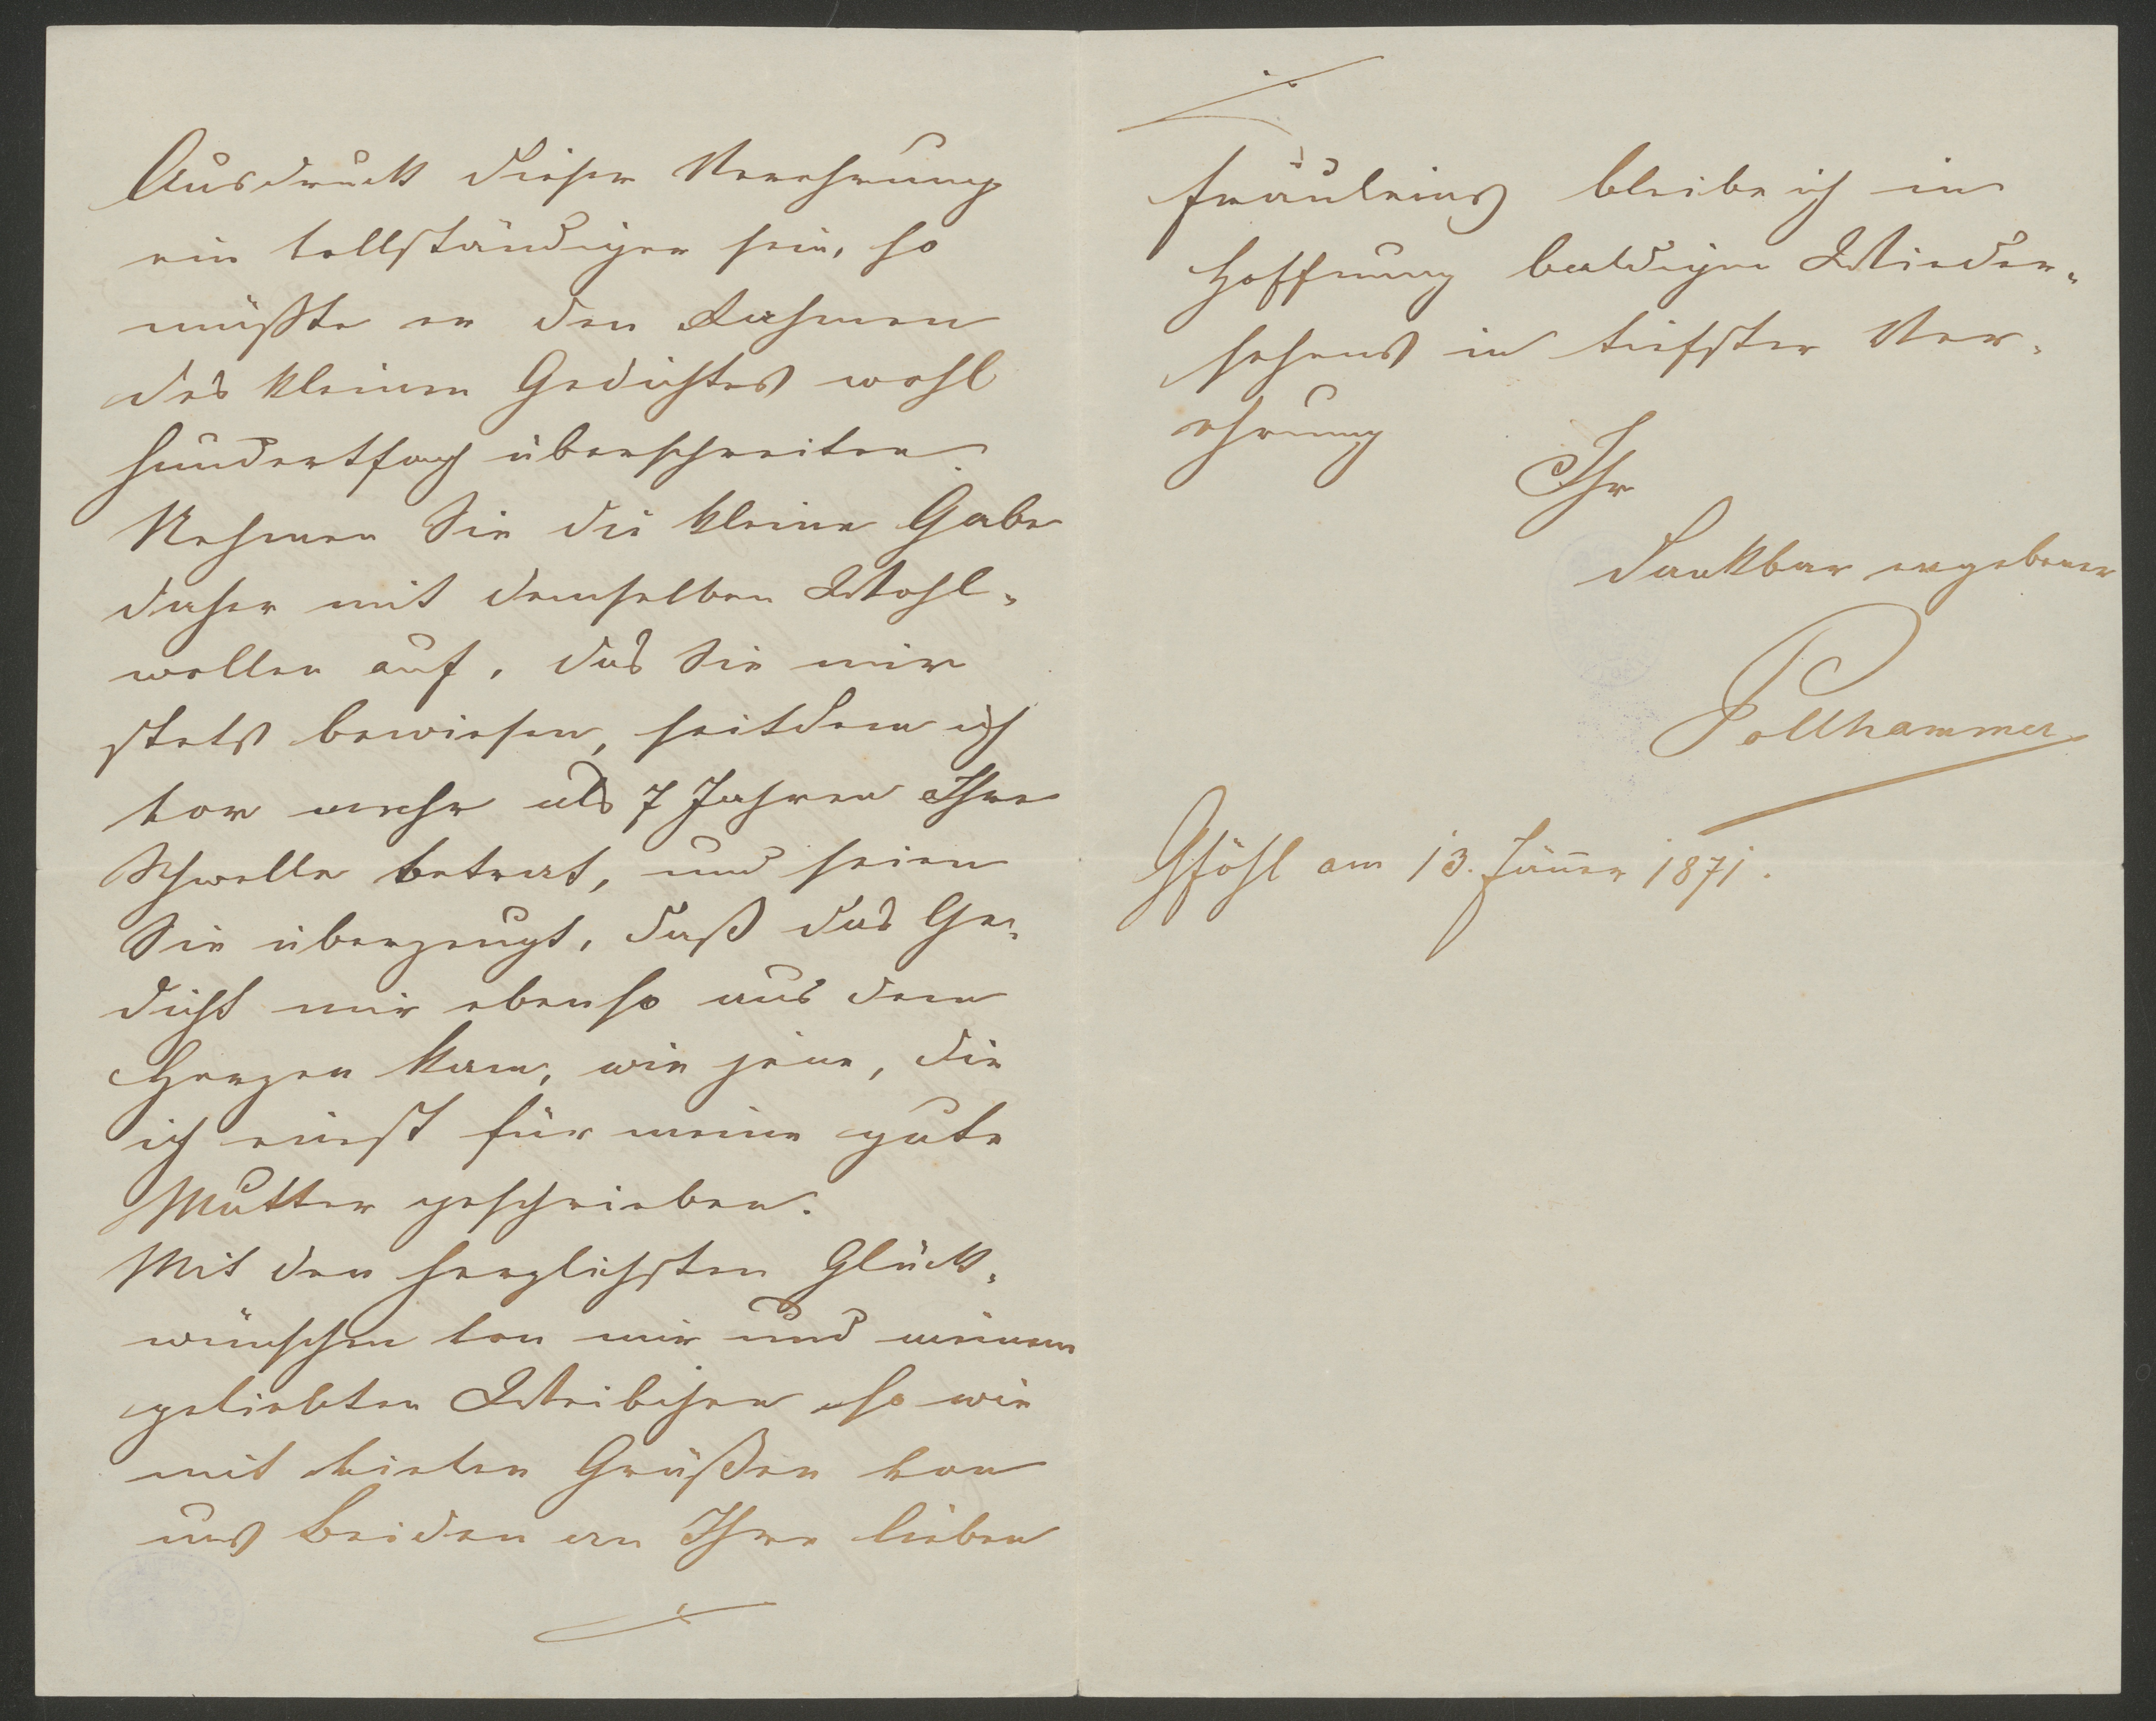 Ausdruck dieser Verehrung
ein vollständiger sein, so
müßte er den Rahmen
des kleinen Gedichtes wohl
hundertfach überschreiten.
Nehmen Sie die kleine Gabe
daher mit demselben Wohl-
wollen auf, das Sie mir
stets bewiesen, seitdem ich
vor mehr als 7 Jahren Ihre
Schwelle betrat, und seien
Sie überzeugt, daß das Ge-
dicht mir ebenso aus dem
Herzen kam, wie jene, die
ich einst für meine gute
Mutter geschrieben.
Mit den herzlichsten Glück-
wünschen von mir und meinem
geliebten Weibchen so wie
mit vielen Grüßen von
uns Beiden an Ihre lieben
Fräuleins bleibe ich in
Hoffnung baldigen Wieder-
sehens in tiefster Ver-
ehrung
Ihr
dankbar ergebener
Pollhammer
Gföhl am 13. Jänner 1871.